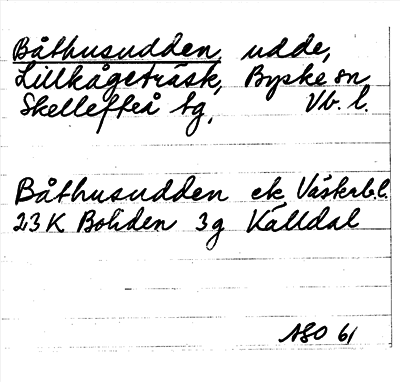 Båthusudden, udde,
Lillkågeträsk, Byske sn
Skellefteå tg, Vb. l.
Båthusudden ek. Väskerb.l.
23K Boliden 3g Källdal
ASO 61